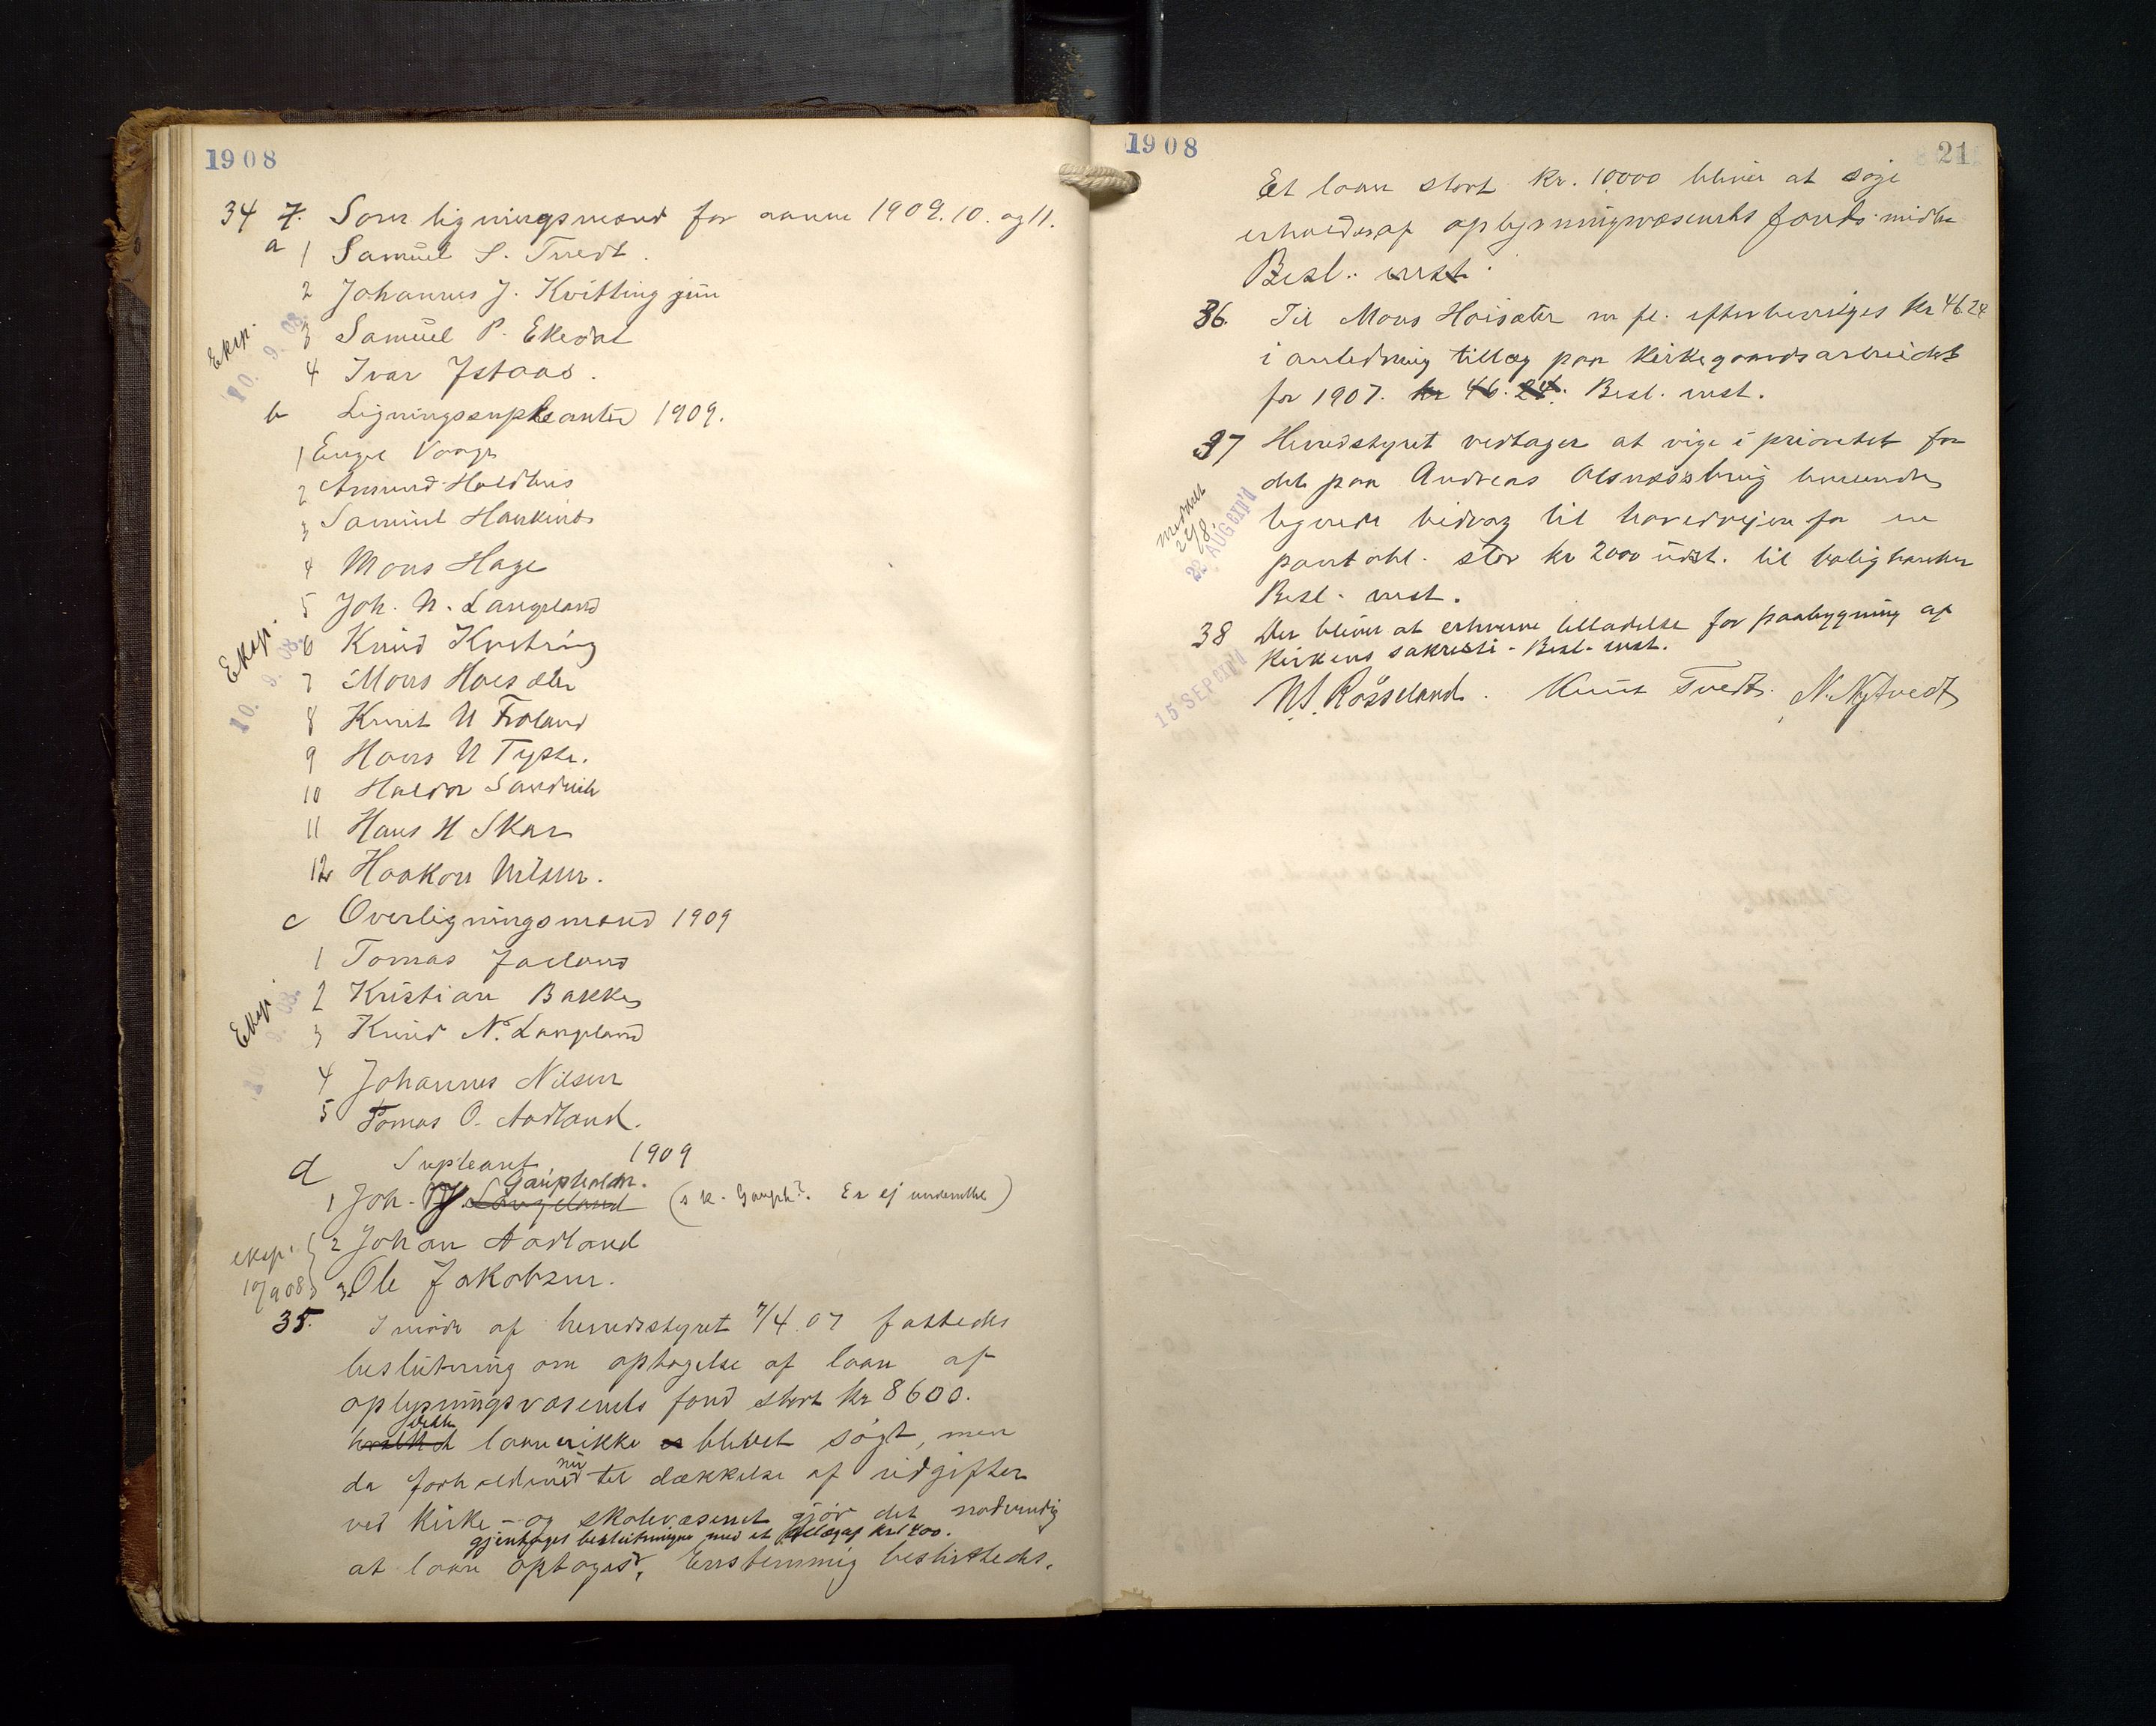 1908
34 7. Som ligningsmænd for aarene 1909. 10. og 11.
a 1 Samuel S. Tvedt.
2 Johannes J. Kvitting jun
Eksp. 10. 9. 08.
3 Samuel P. Ekedal
4 Ivar Istaas.
b Ligningssupleanter 1909.
1 Engel Vaage
2 Amund Holdhus
3 Samuel
4 Mons Hage
5 Joh. N. Langeland
Eksp. 10. 9. 08.
6 Knud Kvitting
7 Mons Høisæter
8 Knut N Frøland
9 Hans N Tysse.
10 Haldor Sandvik
11 Hans H Skar
12 Haakon Nilsen.
c Overligningsmænd 1909
1 Tomas Jarland
Eksp. 10. 9. 08.
2 Kristian Bakke
3 Knud N. Langeland
4 Johannes Nilsen
5 Tomas O. Aadland.
d Supleant 1909
Gaupholm.
1 Joh. Langeland (s k. Gauph?. Er ej underrettet)
2 Johan Aadland
eksp. 10/9 08
3. Ole Jakobsen.
35. I møde af herredsstyret 7/4 07 fattedes
beslutning om optagelse af laan af
oplysningsvæsenets fond stort kr 8600.
dette
hvilket laan er ikke er blevet søgt, men
nu
da forholdene til dækkelse af udgifter
ved kirke- og skolevæsenet gjør det nødvendig
gjentages beslutningen med et tillæg af kr 1400.
at laan optages, Enstemmig besluttedes.
1908
21
Et laan stort kr. 10000 bliver at søge
erholdes af oplysningsvæsenets fonds midler
Besl. enst.
36. Til Mons Høisæter m fl. efterbevilges kr 46.24
i anledning tillæg paa kirkegaardsarbeidet
for 1907. kr 46.24. Besl. enst.
37 Herredstyret vedtager at vige i prioritet for
det paa Andreas Olsnes's brug
meddelt 22 AUG EXP'D
bidrag til hovedveien for en
pant obl. stor kr 2000 udst. til boligbanken
Besl. enst.
38 Der bliver at erhverve tilladelse for paabygning af
kirkens sakresti. Besl. enst.
15 SEP EXP'D
N. S. Røsseland. Knut Tvedt. N. Nytvedt